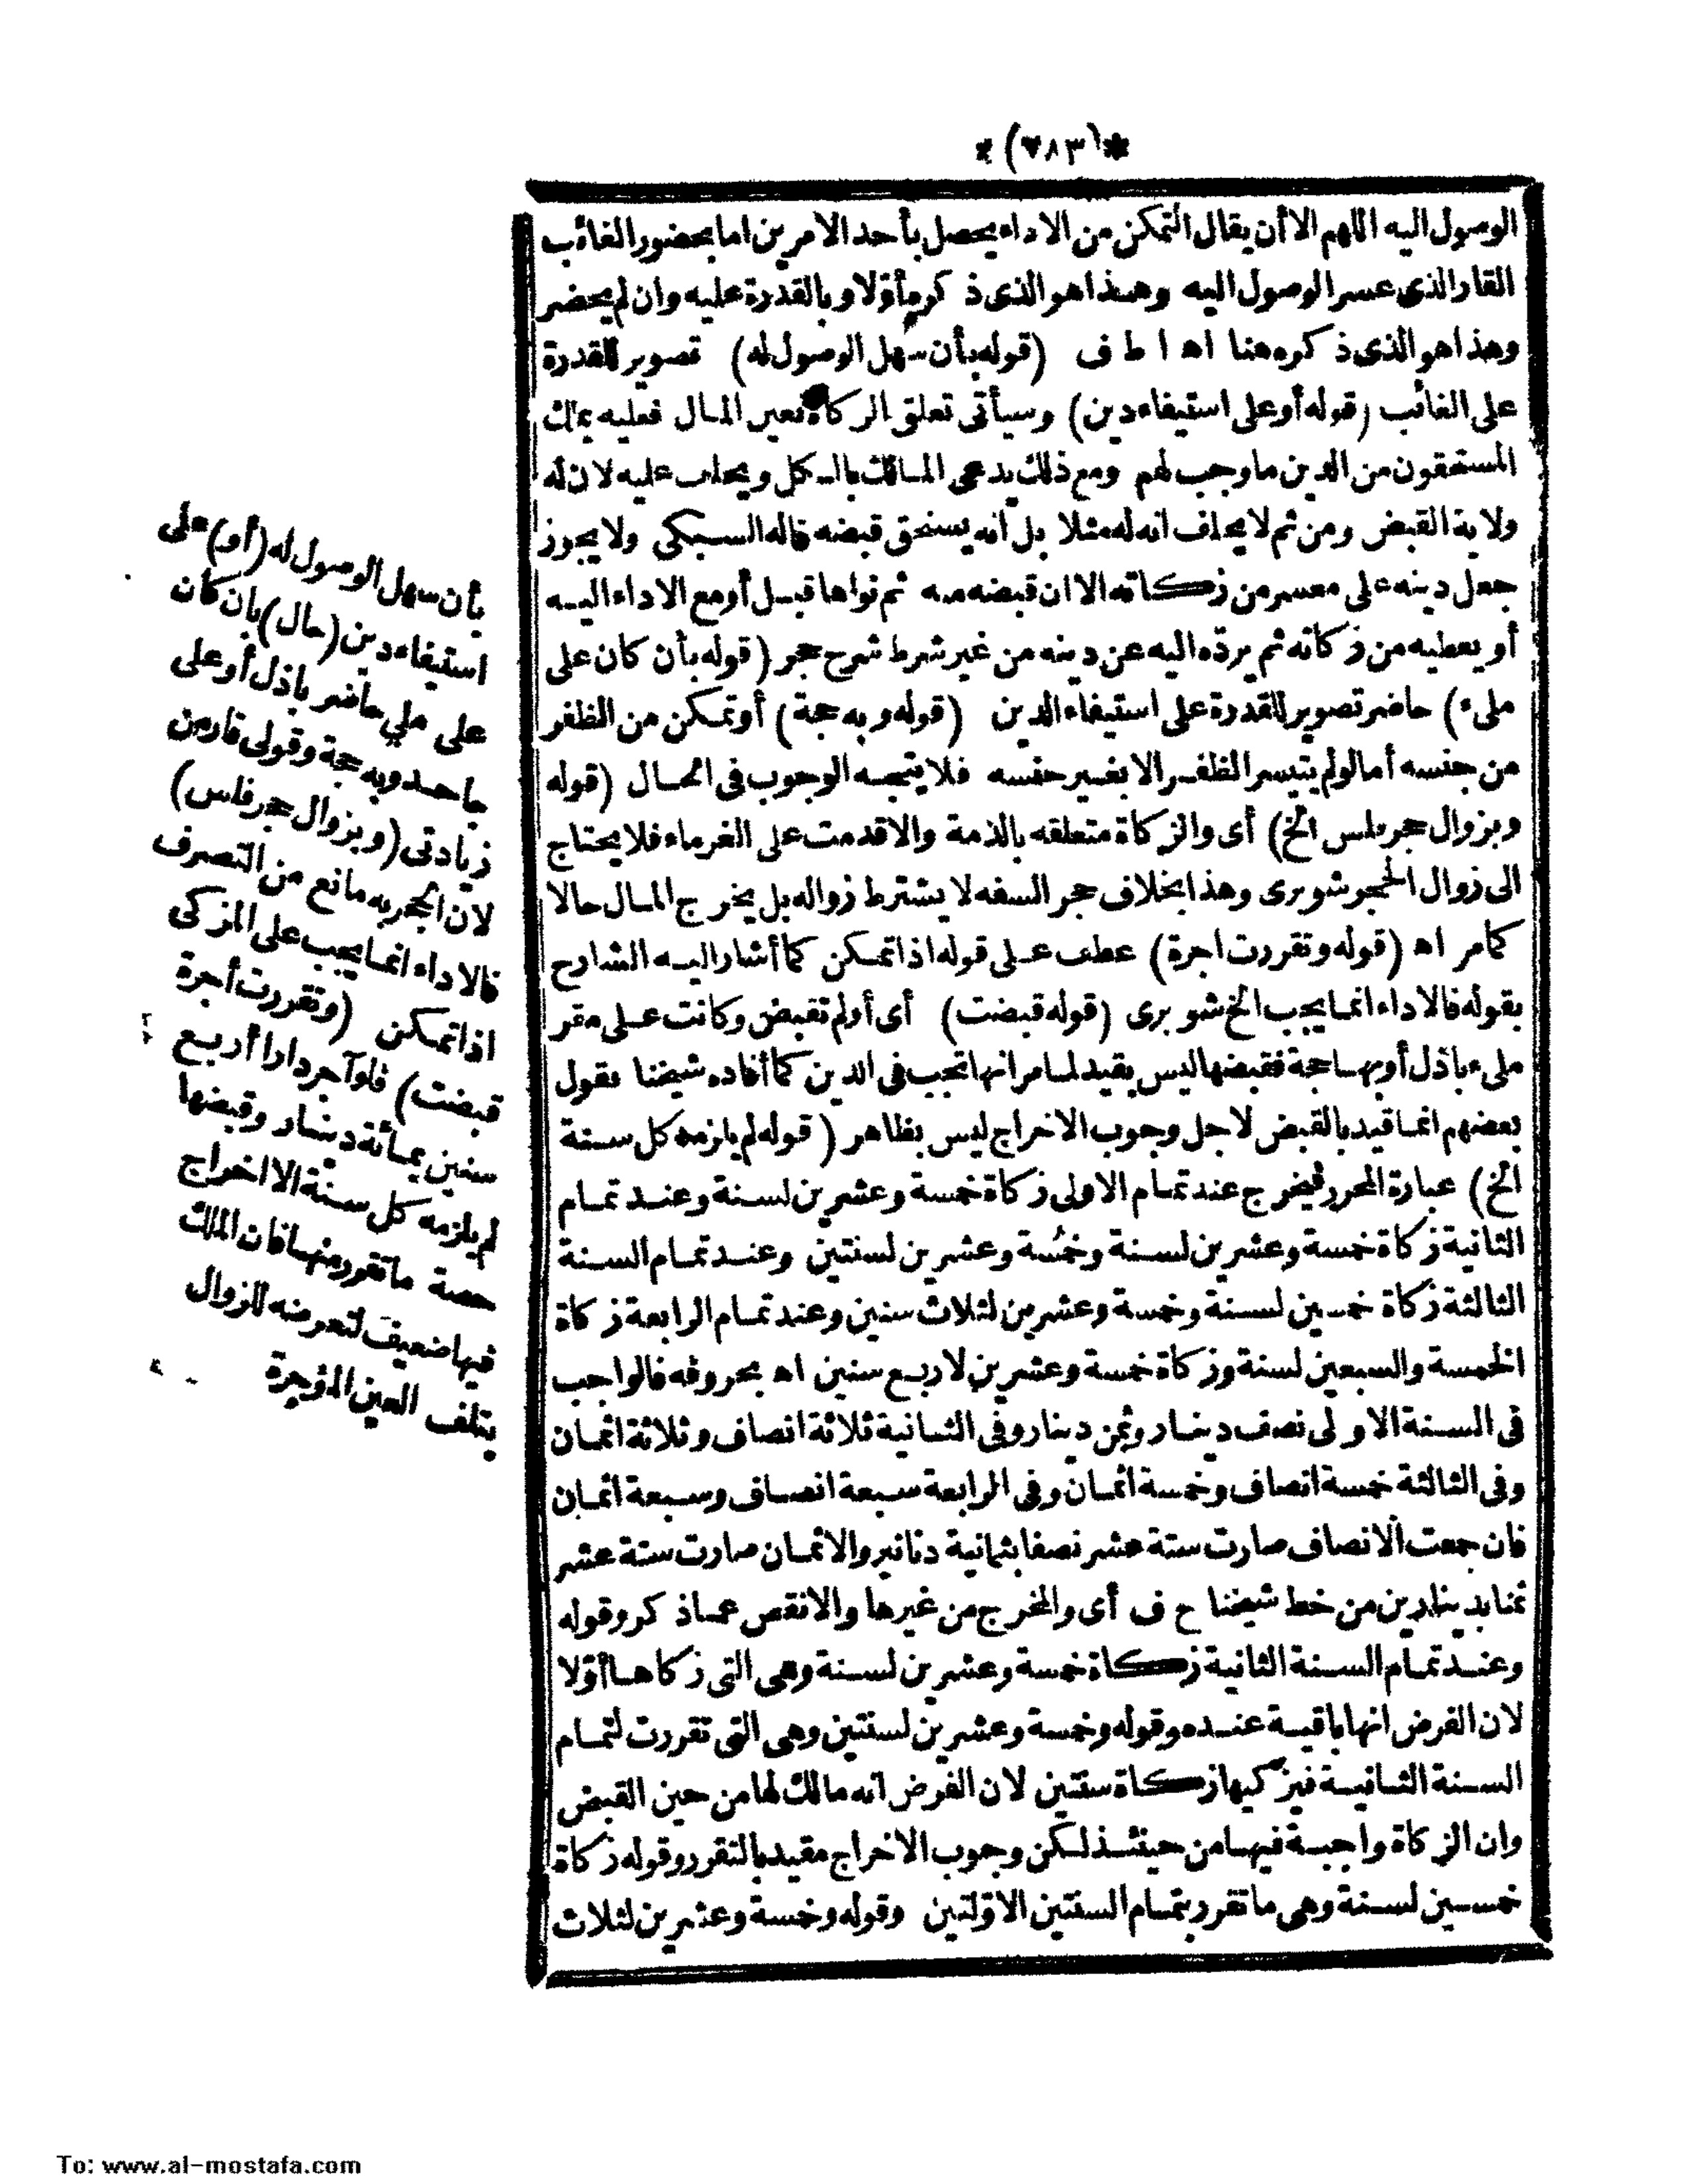 *(٧٨٣)*
الوصول اليه اللهم الا أن يقال التمكن من الاداء يحصل بأحد الامرين اما بحضور الغائب
القار الذى عسر الوصول اليه وهذا هو الذى ذكره أولا و بالقدرة عليه وان لم يحضر
وهذا هو الذى ذكره هنا اه ا ط ف (قوله بأن سهل الوصول له) تصوير للقدرة
على الغائب (قوله أو على استيفاء دين) وسيأتى تعلق الزكاة بعين المال فعليه يملك
المستحقون من الدين ما وجب لهم ومع ذلك يدعى المالك بالكل ويحلف عليه لان له
ولاية القبض ومن ثم لا يحلف انه له مثلا بل انه يستحق قبضه قاله السبكى ولا يجوز
جعل دينه على معسر من زكاته الا ان قبضه منه ثم نواها قبل أو مع الاداء اليه
أو يعطيه من زكاته ثم يرده اليه عن دينه من غير شرط شرح حجر (قوله بأن كان على
ملىء) حاضر تصوير للقدرة على استيفاء الدين (قوله و به حجة) أو تمكن من الظفر
من جنسه أما لو لم يتيسر الظفر الا بغير جنسه فلا يتجه الوجوب فى الحال (قوله
وبزوال حجر فلس الخ) أى والزكاة متعلقه بالذمة والا قدمت على الغرماء فلا يحتاج
الى زوال الحجر شوبرى وهذا بخلاف حجر السفه لا يشترط زواله بل يخرج المال حالا
كما مر اه (قوله وتقررت اجرة) عطف على قوله اذا تمكن كما أشار اليه الشارح
بقوله فالاداء انما يجب الخ شوبرى (قوله قبضت) أى أو لم تقبض وكانت على مقر
ملىء باذل أو بها حجة فقبضها ليس بقيد لما مر انها تجب فى الدين كما أفاده شيخنا فقول
بعضهم انما قيد بالقبض لاجل وجوب الاخراج ليس بظاهر (قوله لم يلزمه كل سنة
الخ) عبارة المحرر فيخرج عند تمام الاولى زكاة خمسة وعشرين لسنة وعند تمام
الثانية زكاة خمسة وعشرين لسنة وخمسة وعشرين لسنتين وعند تمام السنة
الثالثة زكاة خمسين لسنة وخمسة وعشرين لثلاث سنين وعند تمام الرابعة زكاة
الخمسة والسبعين لسنة وزكاة خمسة وعشرين لاربع سنين اه بحروفه فالواجب
فى السنة الاولى نصف دينار وثمن دينار وفى الثانية ثلاثة انصاف وثلاثة اثمان
وفى الثالثة خمسة انصاف وخمسة اثمان وفى الرابعة سبعة انصاف وسبعة اثمان
فان جمعت الانصاف صارت ستة عشر نصفا بثمانية دنانير والاثمان صارت ستة عشر
ثمنا بدينارين من خط شيخنا ح ف أى والمخرج من غيرها والا نقص عما ذكر وقوله
وعند تمام السنة الثانية زكاة خمسة وعشرين لسنة وهى التى زكاها أولا
لان الفرض انها باقية عنده وقوله وخمسة وعشرين لسنتين وهى التى تقررت لتمام
السنة الثانية فيزكيها زكاة سنتين لان الفرض انه مالك لها من حين القبض
وان الزكاة واجبة فيها من حينئذ لكن وجوب الاخراج مقيد بالتقرر وقوله زكاة
خمسين لسنة وهى ما تقرر بتمام السنتين الاولتين وقوله وخمسة وعشرين لثلاث
بأن سهل الوصول له (أو) على
استيفاء دين (حال) بان كان
على ملىء حاضر باذل أو على
جاحد وبه حجة وقولى قار من
زيادتى (وبزوال حجر فلس)
لان الحجر به مانع من التصرف
فالاداء انما يجب على المزكى
اذا تمكن (وتقررت أجرة
قبضت) فلو آجر دارا أربع
سنين بمائة دينار وقبضها
لم يلزمه كل سنة الا اخراج
حصة ما تقرر منها فان الملك
فيها ضعيف لتعرضه للزوال
بتلف العين المؤجرة
To: www.al-mostafa.com